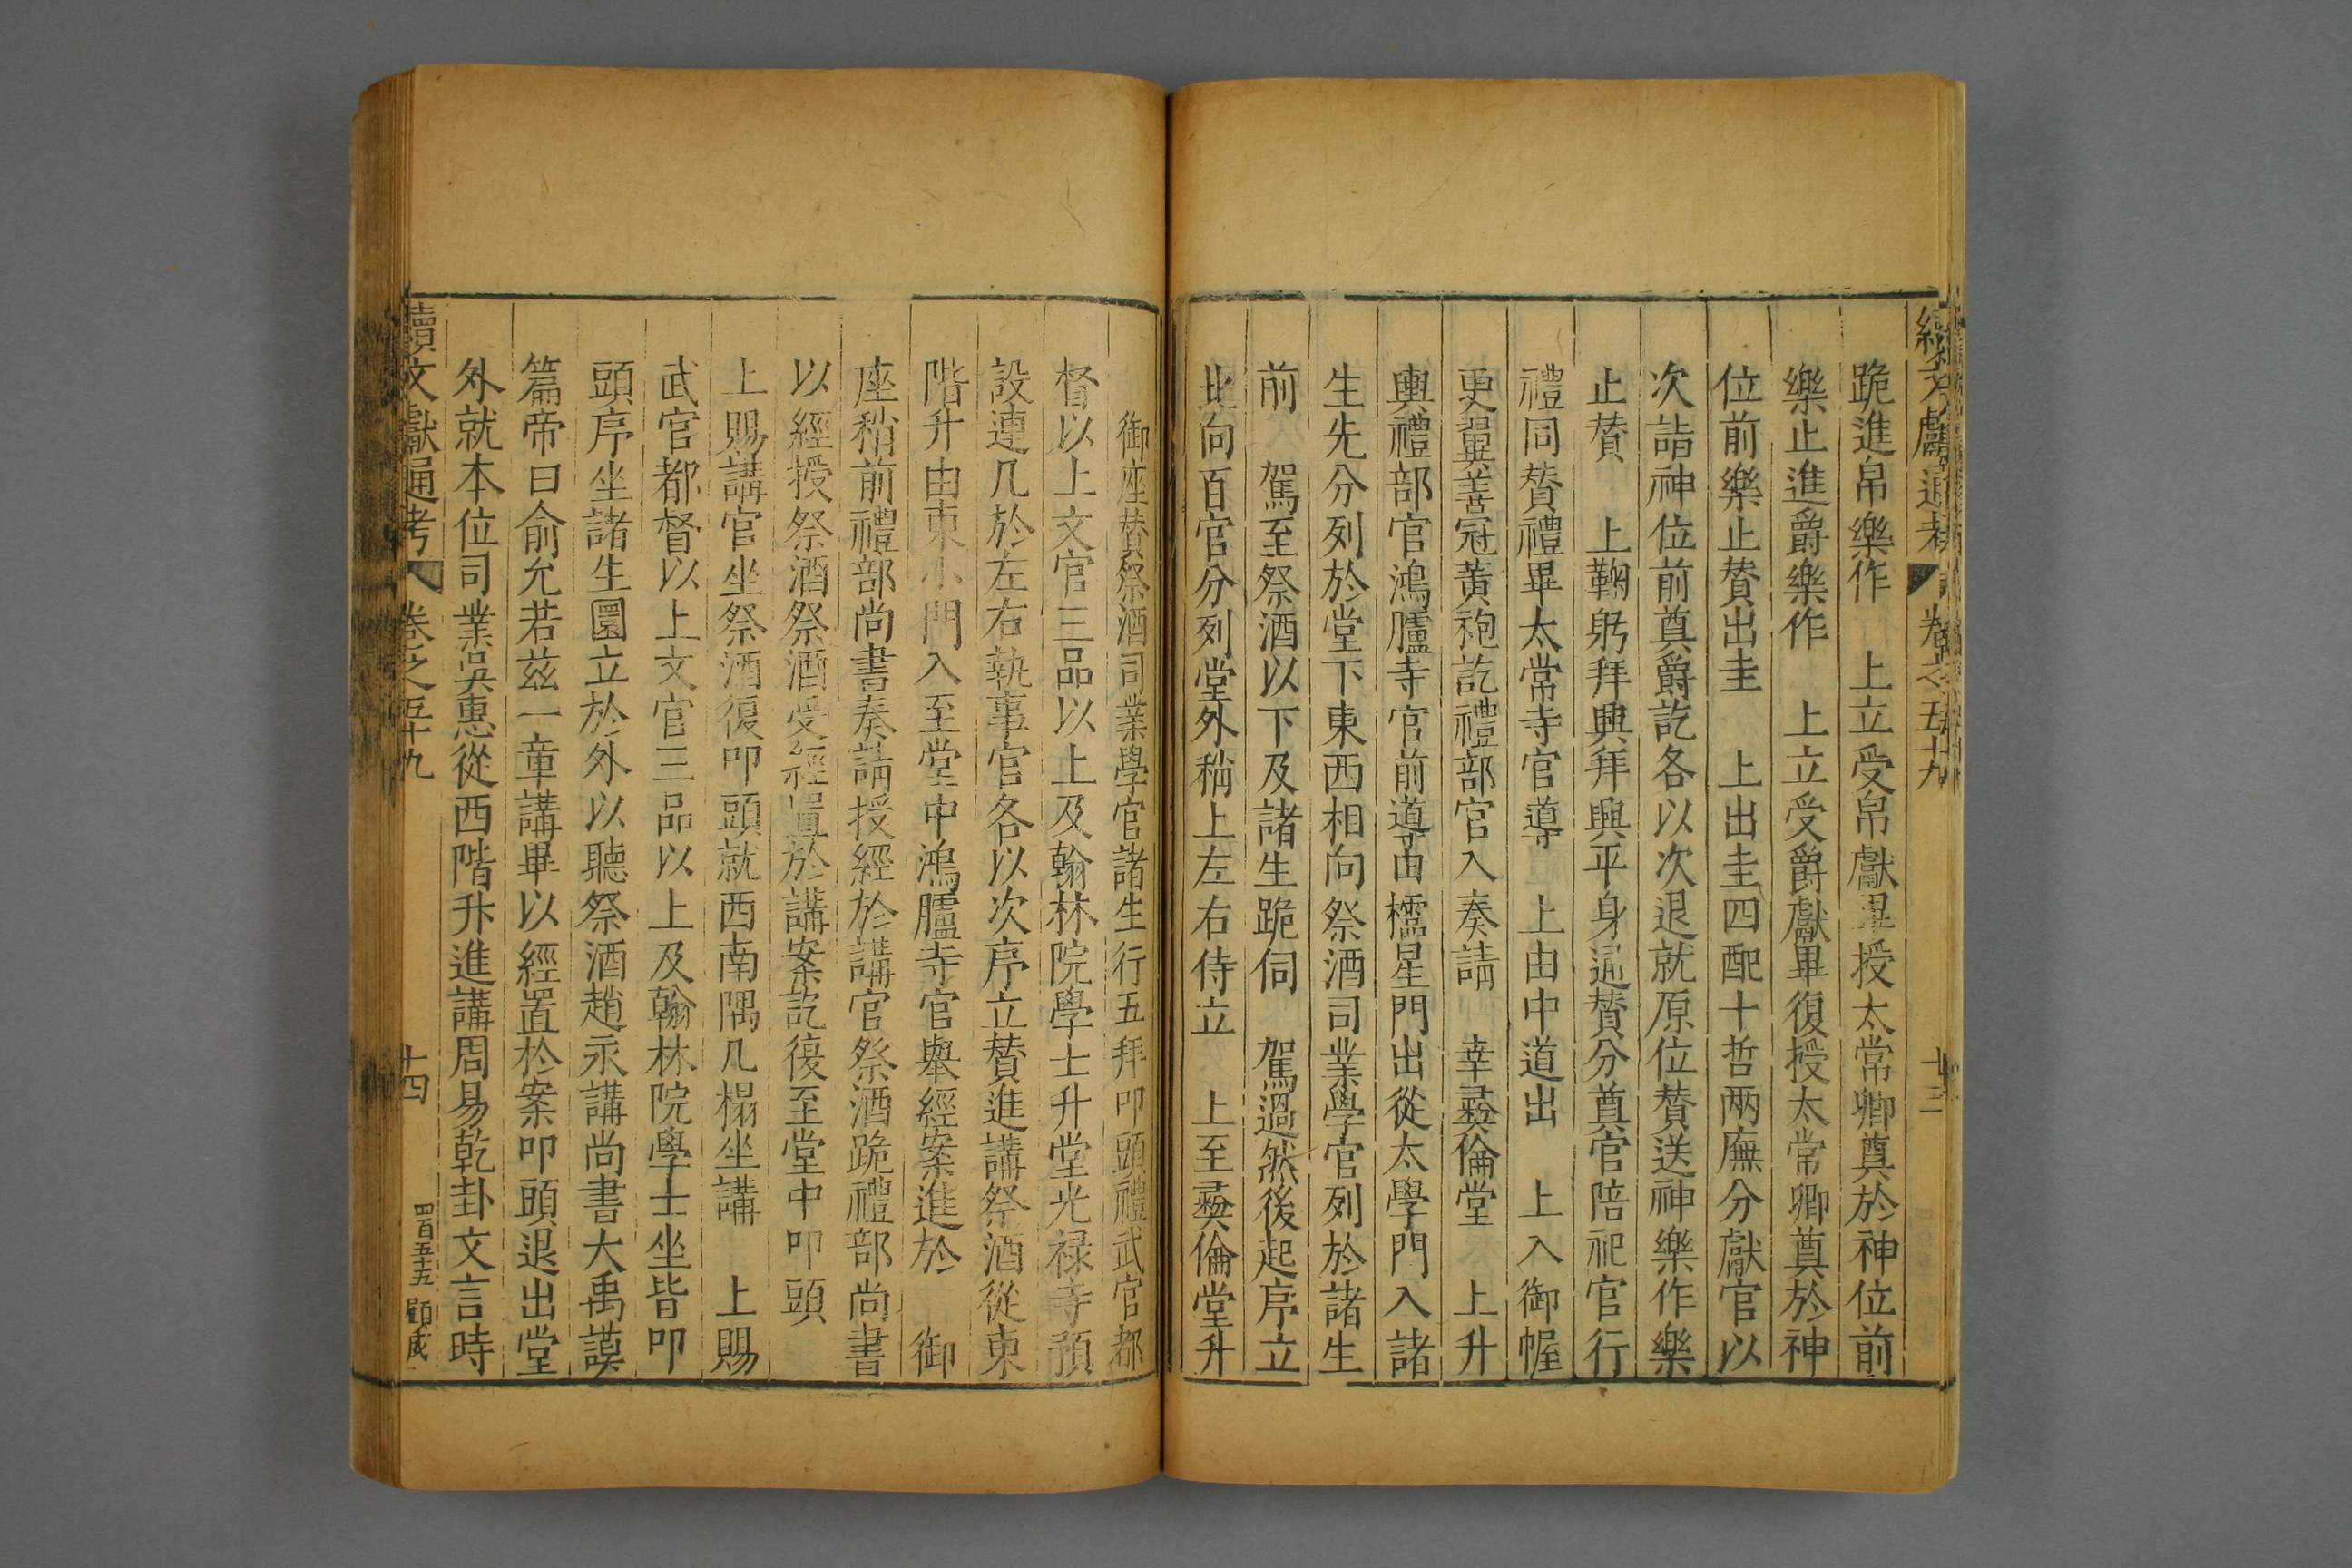 續文獻通考 卷之五十九 十三
跪進帛樂作 上立受帛獻畢授太常卿奠於神位前
樂止進爵樂作 上立受爵獻畢復授太常卿奠於神
位前樂止贊出圭 上出圭四配十哲兩廡分獻官以
次詣神位前奠爵訖各以次退就原位贊送神樂作樂
止贊 上鞠躬拜興拜興平身通贊分奠官陪祀官行
禮同贊禮畢太常寺官導 上由中道出 上入御幄
更翼善冠黃袍訖禮部官入奏請 幸彝倫堂 上升
輿禮部官鴻臚寺官前導由櫺星門出從太學門入諸
生先分列於堂下東西相向祭酒司業學官列於諸生
前 駕至祭酒以下及諸生跪伺 駕過然後起序立
北向百官分列堂外稍上左右侍立 上至彝倫堂升
御座贊祭酒司業學官諸生行五拜叩頭禮武官都
督以上文官三品以上及翰林院學士升堂光祿寺預
設連几於左右執事官各以次序立贊進講祭酒從東
階升由東小門入至堂中鴻臚寺官舉經案進於 御
座稍前禮部尚書奏請授經於講官祭酒跪禮部尚書
以經授祭酒祭酒受經置於講案訖復至堂中叩頭
上賜講官坐祭酒復叩頭就西南隅几榻坐講 上賜
武官都督以上文官三品以上及翰林院學士坐皆叩
頭序坐諸生圜立於外以聽祭酒趙永講尚書大禹謨
篇帝曰俞允若茲一章講畢以經置於案叩頭退出堂
外就本位司業吳惠從西階升進講周易乾卦文言時
續文獻通考 卷之五十九 十四 四百五十五 顧成